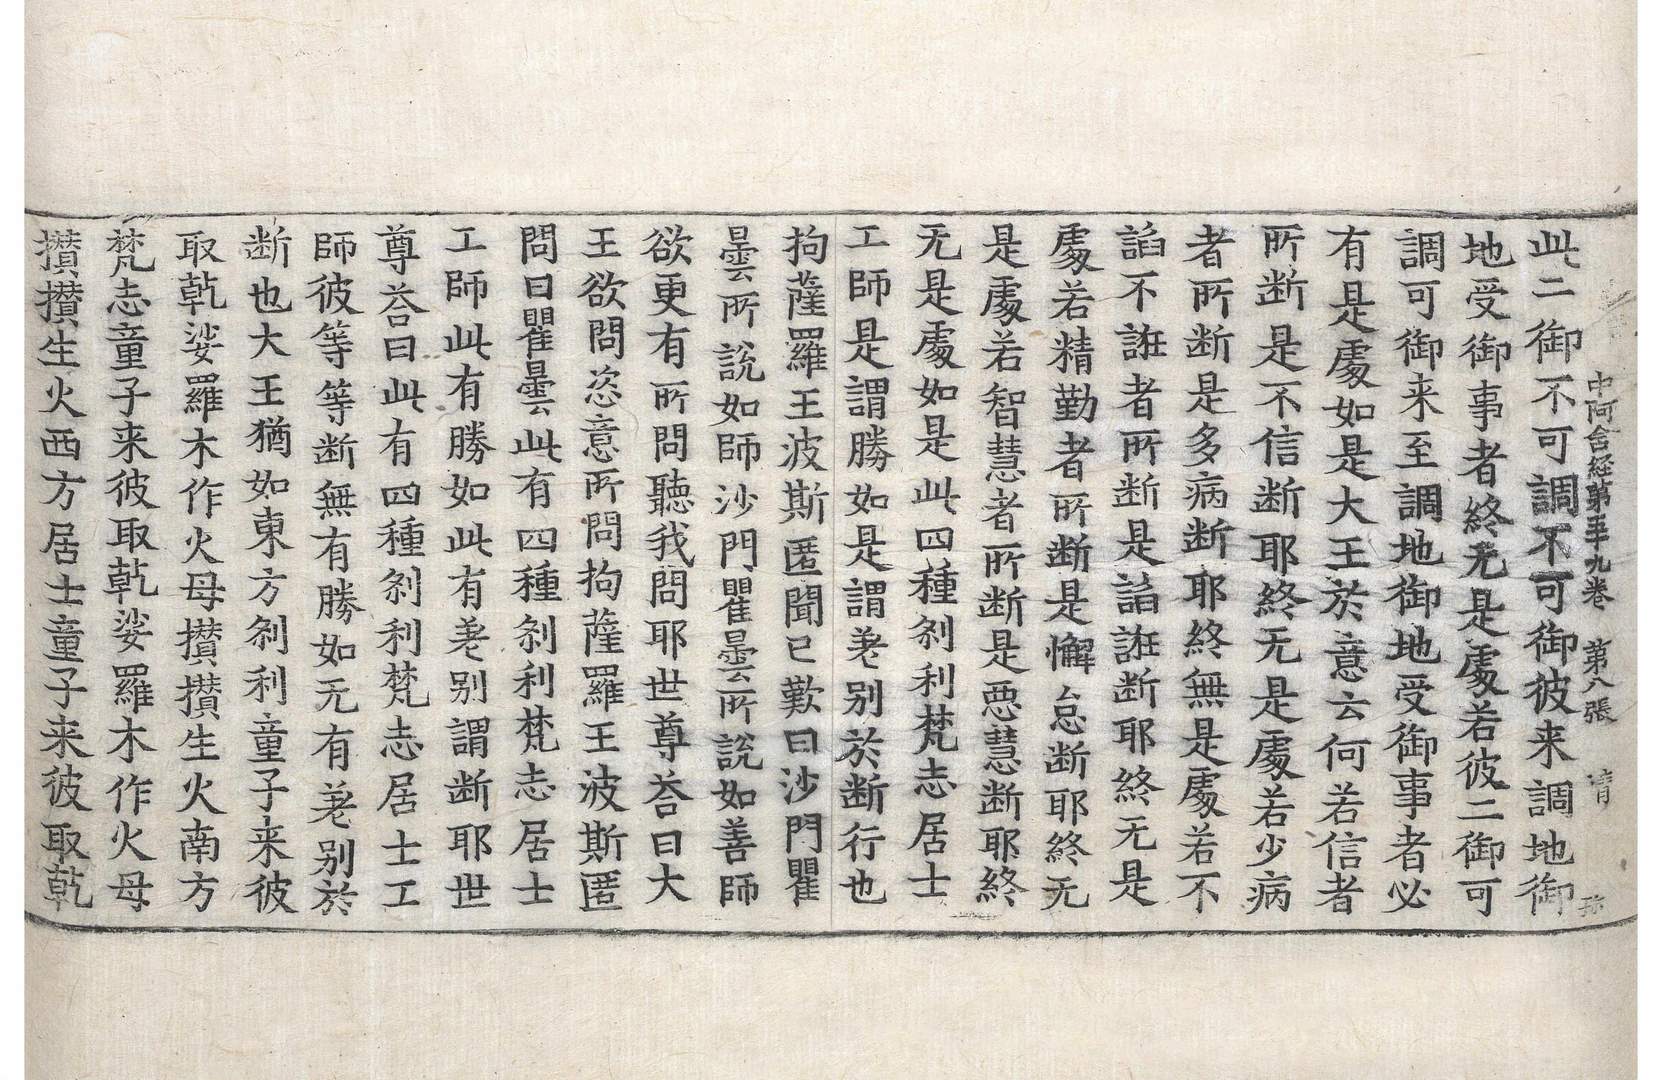 中阿含経第五十九巻　第八張　清
此二御不可調不可御彼来調地御
地受御事者終无是處若彼二御可
調可御来至調地御地受御事者必
有是處如是大王於意云何若信者
所断是不信断耶終无是處若少病
者所断是多病断耶終無是處若不
諂不誑者所断是諂誑断耶終无是
處若精勤者所断是懈怠断耶終无
是處若智慧者所断是悪慧断耶終
无是處如是此四種刹利梵志居士
工師是謂勝如是謂差别於断行也
拘薩羅王波斯匿聞已歎曰沙門瞿
曇所説如師沙門瞿曇所説如善師
欲更有所問聽我問耶世尊荅曰大
王欲問恣意所問拘薩羅王波斯匿
問曰瞿曇此有四種刹利梵志居士
工師此有勝如此有差别謂断耶世
尊荅曰此有四種刹利梵志居士工
師彼等等断無有勝如无有差别於
断也大王猶如東方刹利童子来彼
取乹娑羅木作火母攅攅生火南方
梵志童子来彼取乹娑羅木作火母
攅攅生火西方居士童子来彼取乹